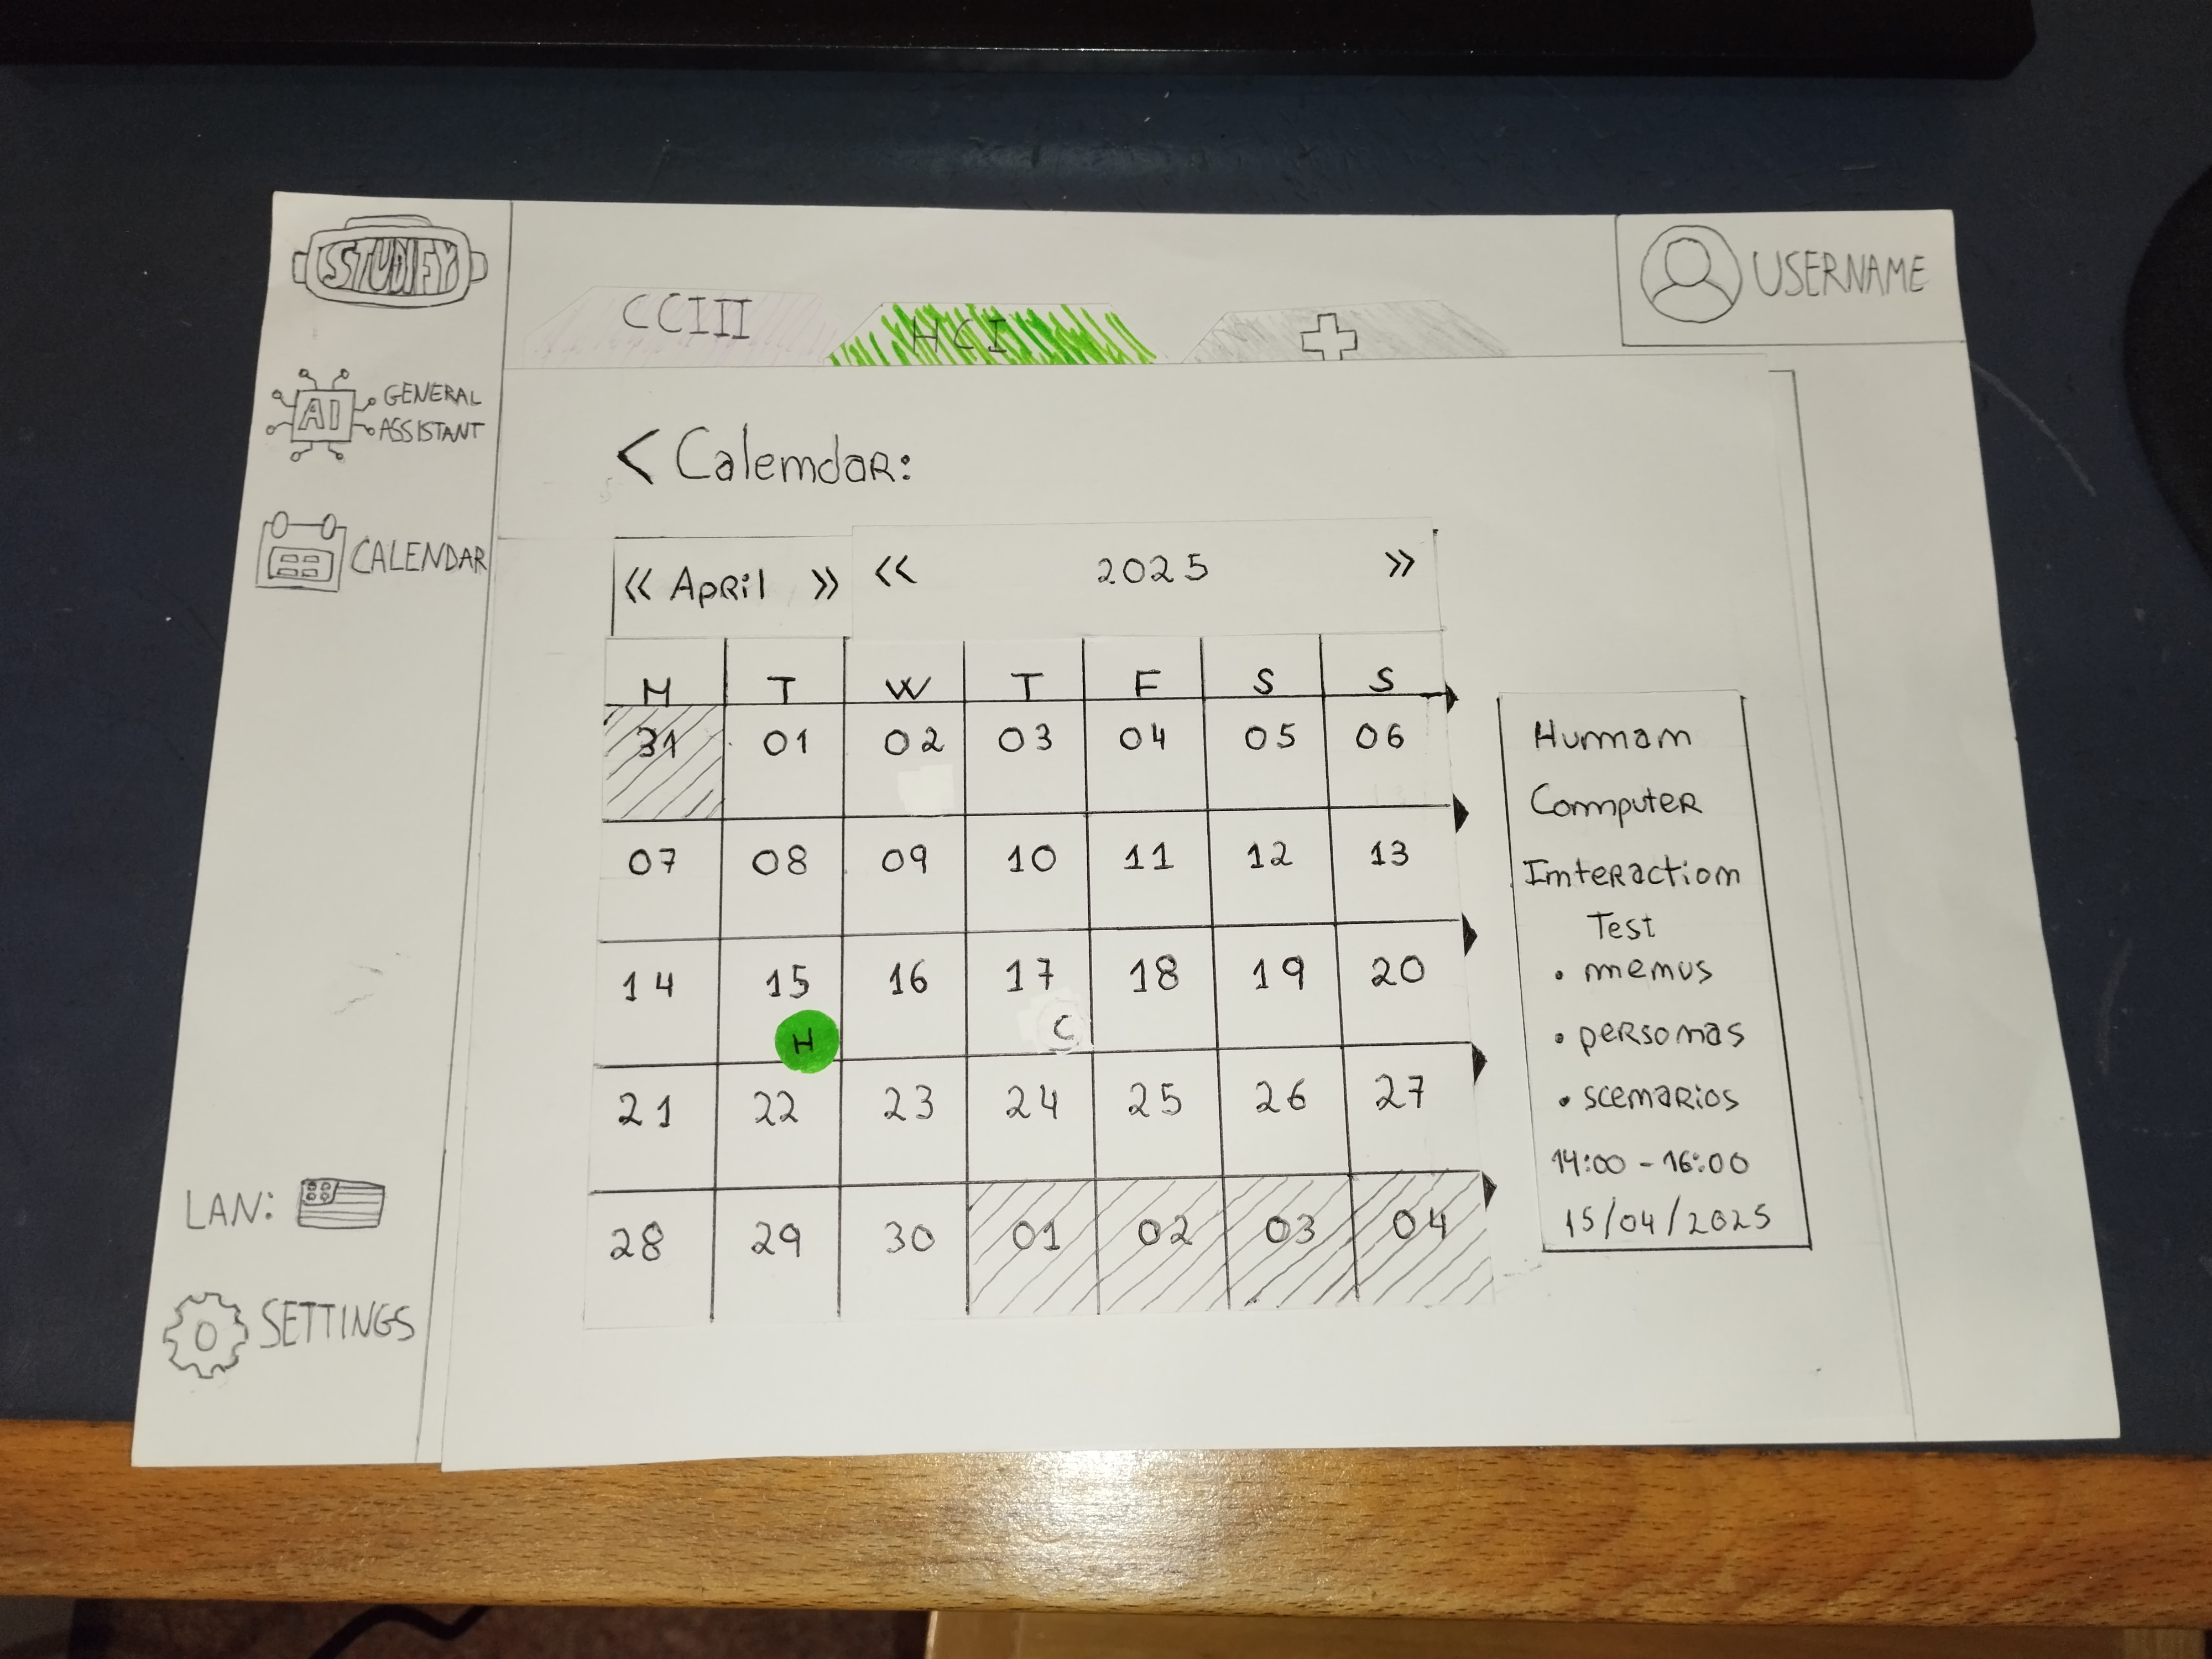 STUDIFY
USERNAME
CCIII
HCI
GENERAL
ASSISTANT
AI
CALENDAR
LAN:
SETTINGS
< Calendar:
« April »
« 2025 »
M T W T F S S
31 01 02 03 04 05 06
07 08 09 10 11 12 13
14 15 16 17 18 19 20
H C
21 22 23 24 25 26 27
28 29 30 01 02 03 04
Human
Computer
Interaction
Test
• menus
• personas
• scenarios
14:00 - 16:00
15/04/2025